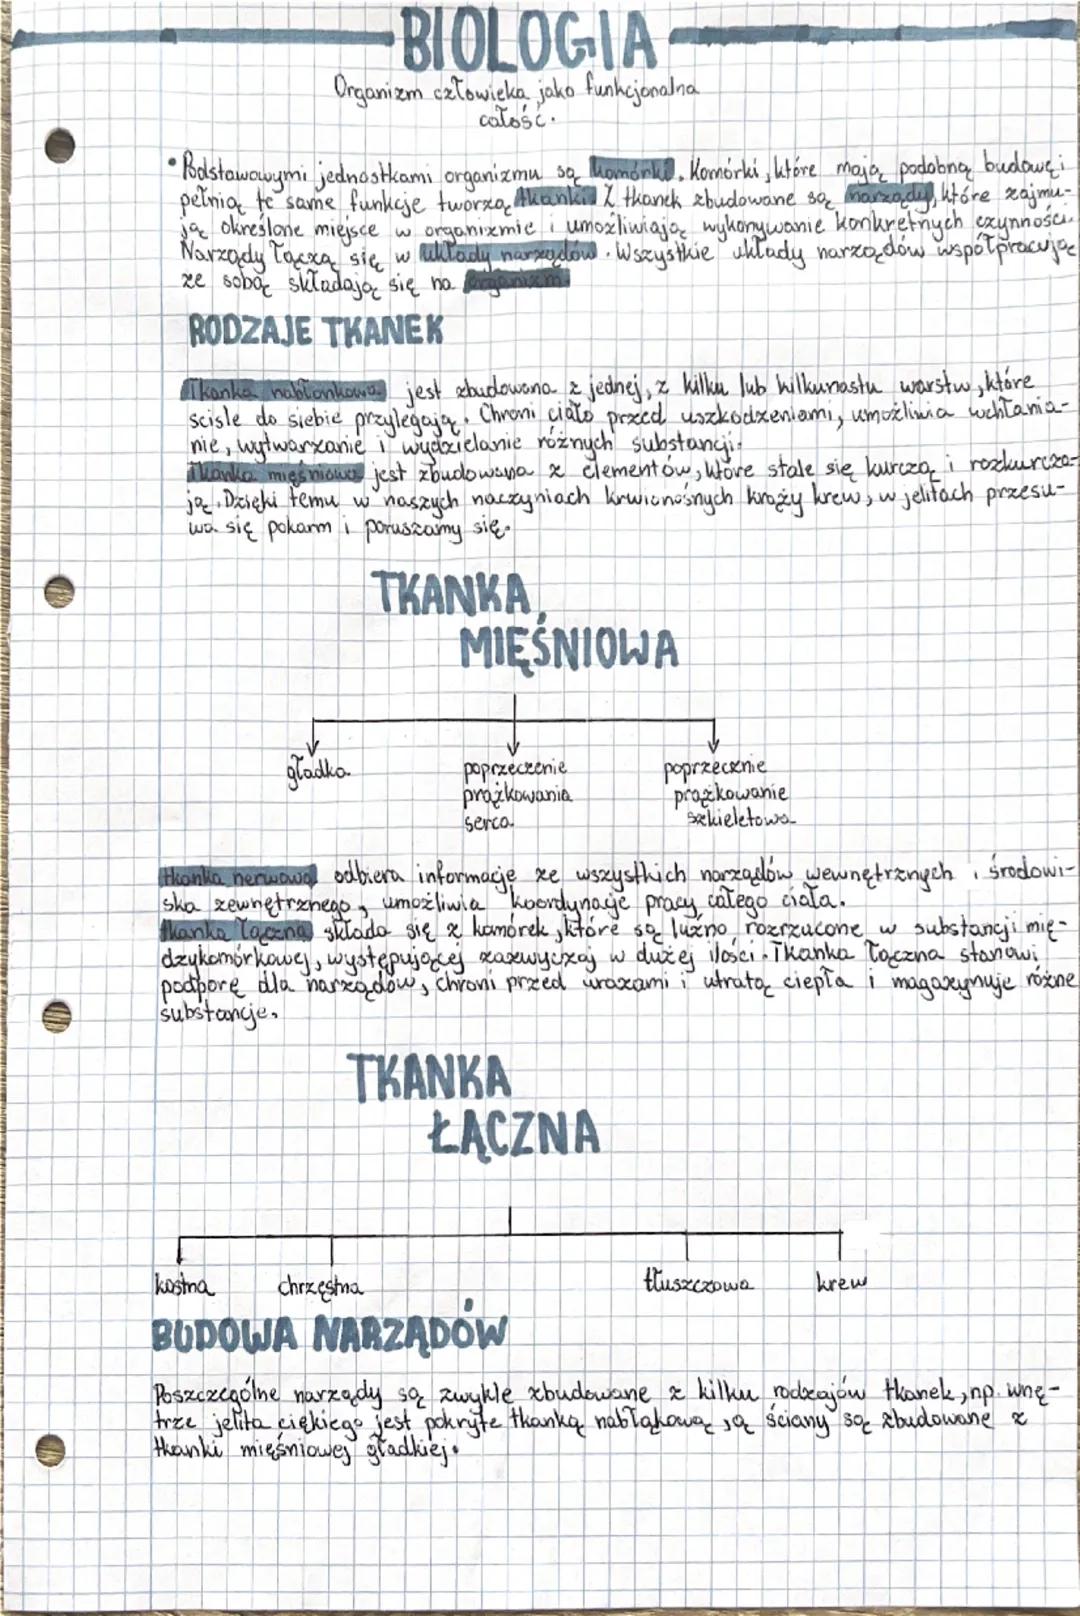 BIOLOGIA
Organizm człowieka jako funkcjonalna
całość.
• Podstawowymi jednostkami organizmu są komórki. Komórki, które mają podobną budowę i
pełnią te same funkcje tworzą tkanki. Z tkanek zbudowane są narządy, które zajmu-
ją określone miejsce w organizmie i umożliwiają wykonywanie konkretnych czynności.
Narządy łączą się w układy narządów. Wszystkie układy narządów współpracując
ze sobą składają się na organizm.
RODZAJE TKANEK
Tkanka nabłonkowa jest zbudowana z jednej, z kilku lub kilkunastu warstw, które
ściśle do siebie przylegają. Chroni ciało przed uszkodzeniami, umożliwia wchłania-
nie, wytwarzanie i wydzielanie różnych substancji.
Tkanka mięśniowa jest zbudowana z elementów, które stale się kurczą i rozkurcza-
ją. Dzięki temu w naszych naczyniach krwionośnych krąży krew, w jelitach przesu-
wa się pokarm i poruszamy się.
TKANKA
MIĘŚNIOWA
gładka
poprzeczenie
prążkowania
serca
poprzecznie
prążkowanie
szkieletowa
tkanka nerwowa odbiera informacje ze wszystkich narządów wewnętrznych i środowi-
ska zewnętrznego, umożliwia koordynację pracy całego ciała.
tkanka łączna składa się z komórek, które są luźno rozrzucone w substancji mię-
dzykomórkowej, występującej zazwyczaj w dużej ilości. Tkanka łączna stanowi
podporę dla narządów, chroni przed urazami i utratą ciepła i magazynuje różne
substancje.
TKANKA
ŁĄCZNA
kostna
chrzęstna
tłuszczowa
krew
BUDOWA NARZĄDÓW
Poszczególne narządy są zwykle zbudowane z kilku rodzajów tkanek, np. wnę-
trze jelita ciękiego jest pokryte tkanką nabłąkową, ą ściany są zbudowane z
tkanki mięśniowej gładkiej.